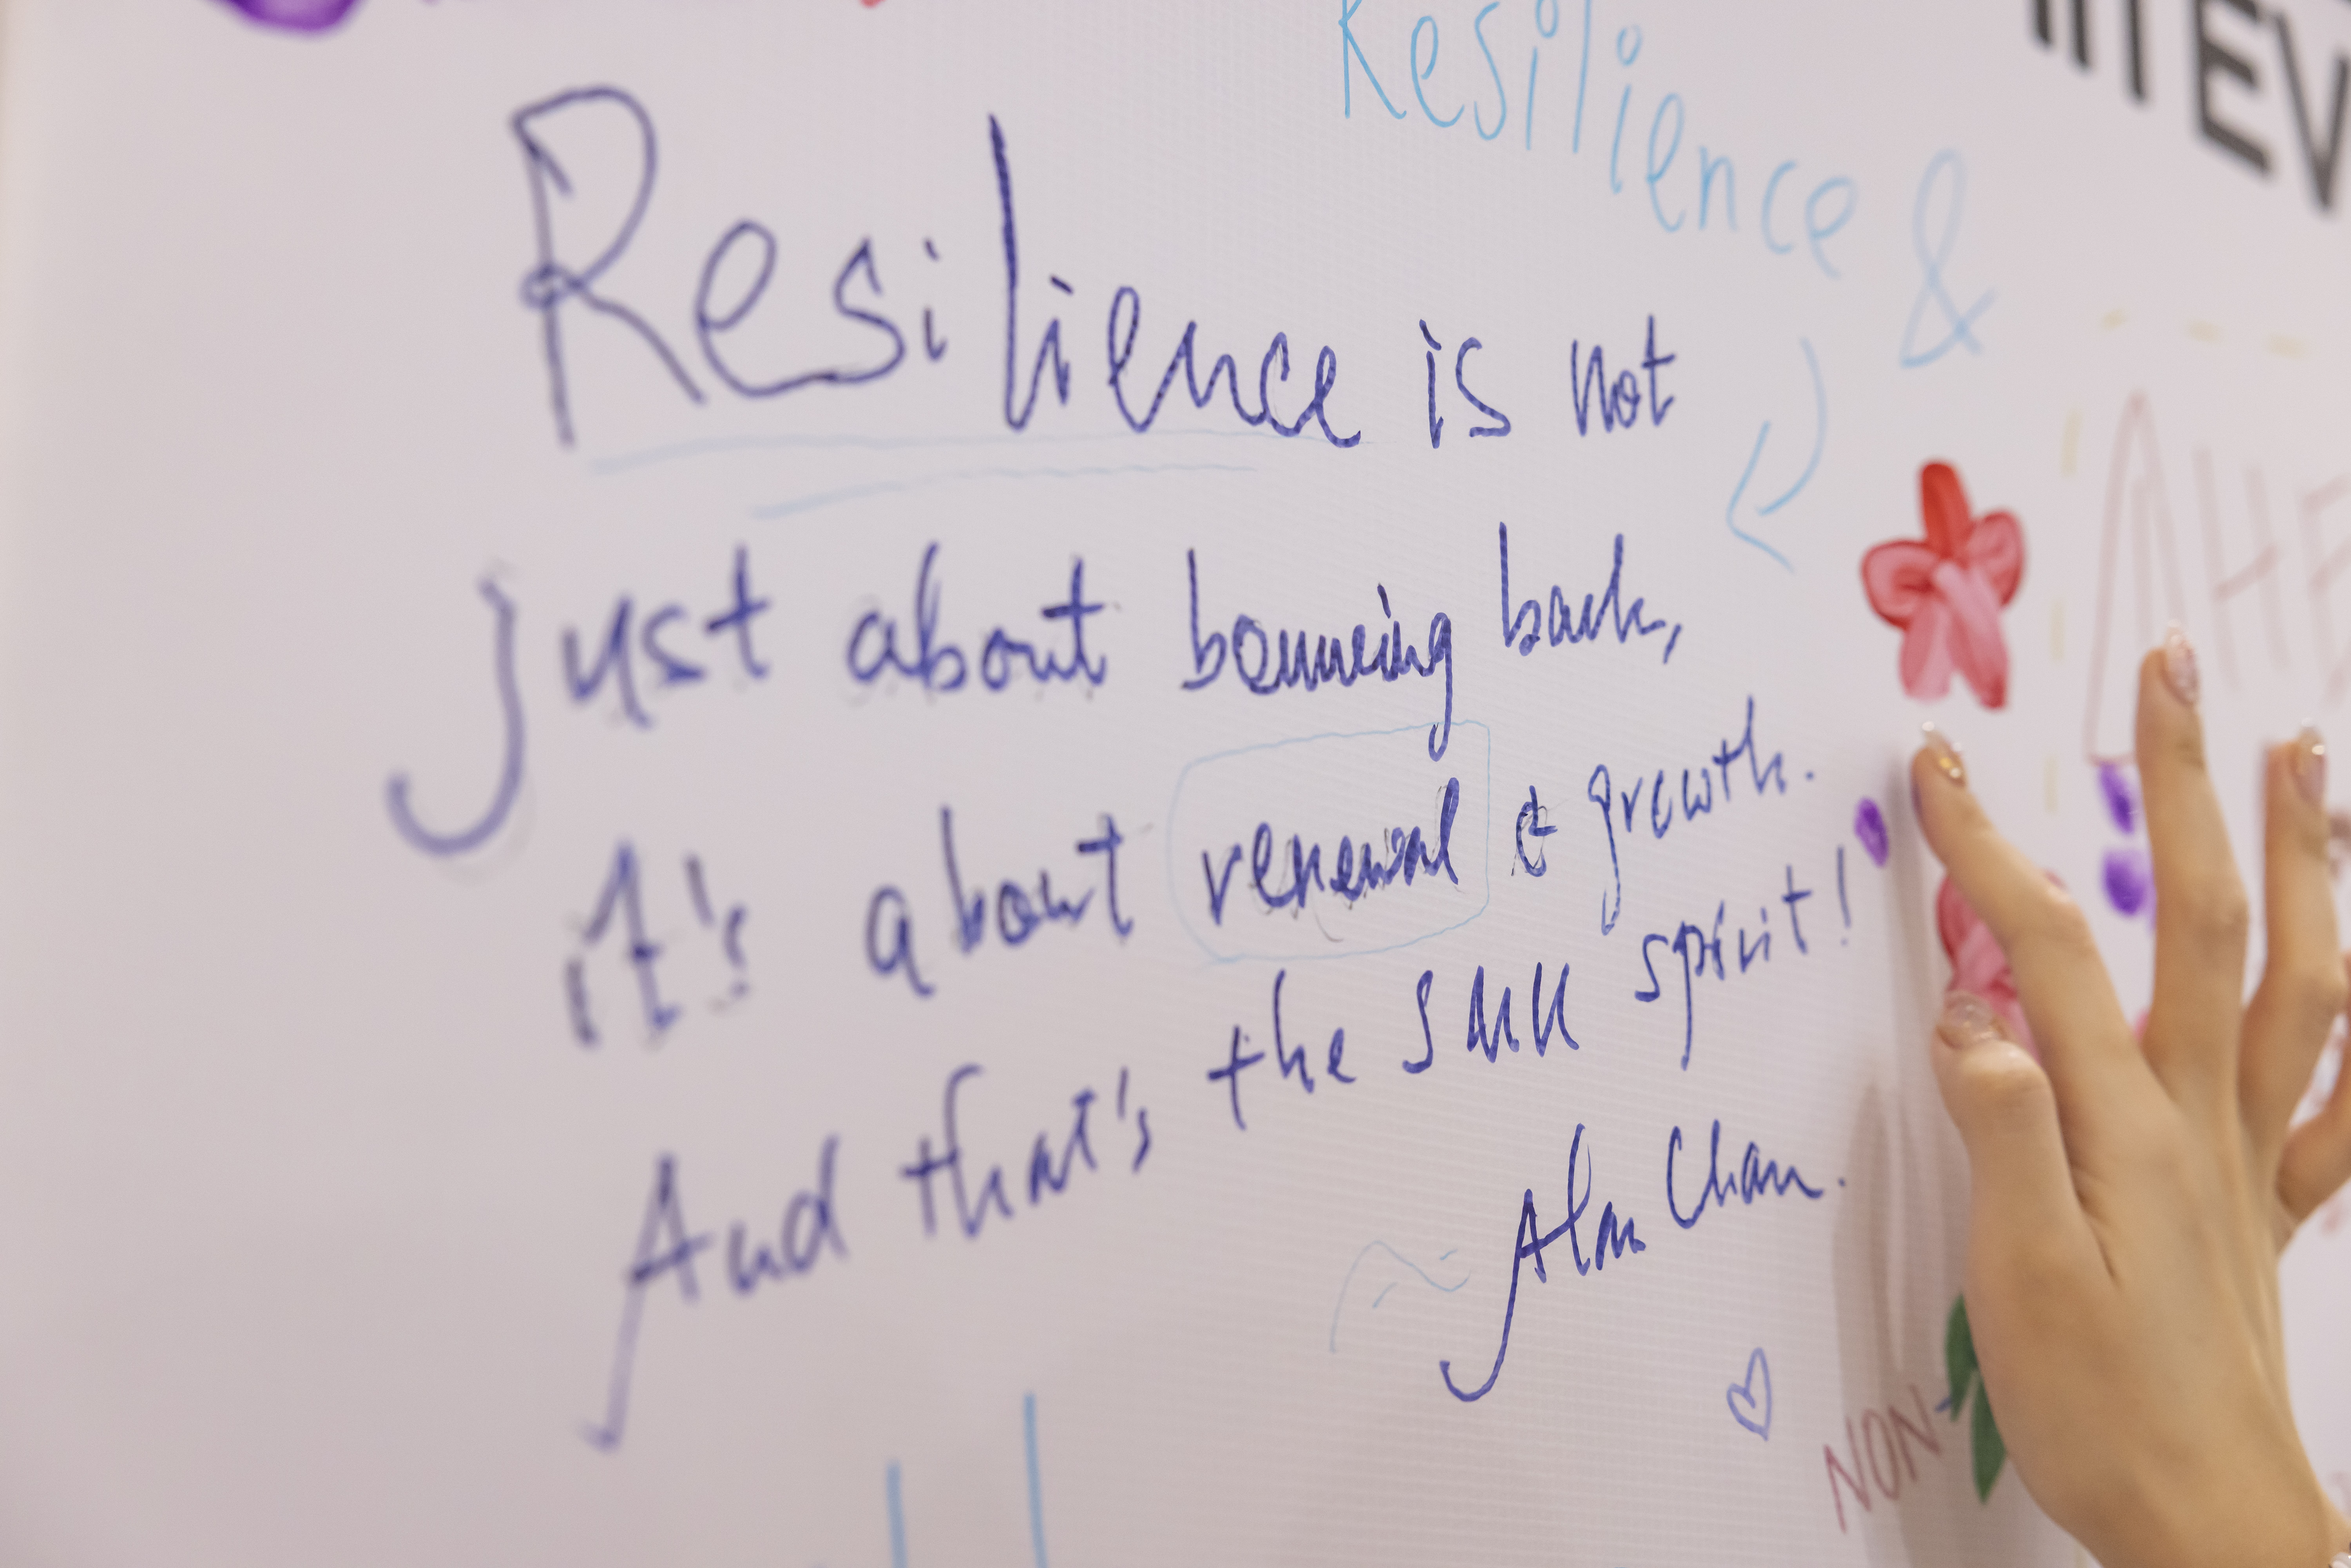 Resilience &
ITEV
Resilience is not
just about bouncing back,
it's about renewal & growth.
And that's the SMU spirit!
Alan Chan.
AHE
NON-